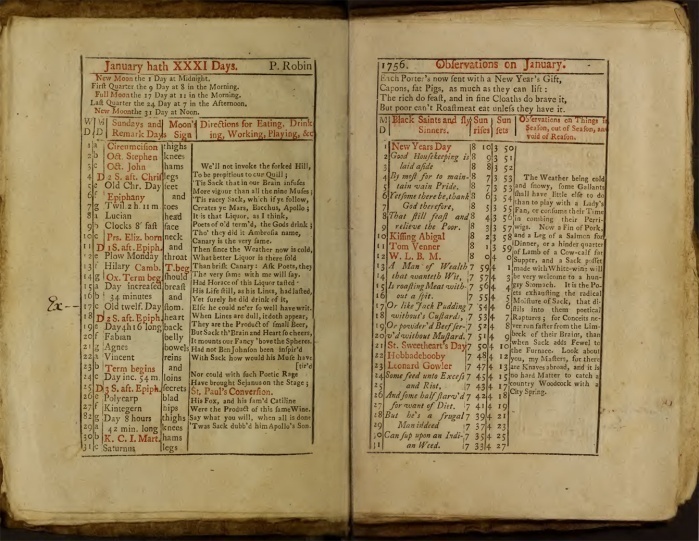 January hath XXXI Days. P. Robin
New Moon the 1 Day at Midnight.
First Quarter the 9 Day at 8 in the Morning.
Full Moon the 17 Day at 11 in the Morning.
Last Quarter the 24 Day at 7 in the Afternoon.
New Moon the 31 Day at Noon.
W M Sundays and Moon's Directions for Eating, Drink
D D Remark Days Sign ing, Working, Playing, &c
1 a Circumcision thighs
2 b Oct. Stephen knees
3 c Oct. John hams
4 D 2 S. aft. Chris legs
5 e Old Chr. Day feet
6 f Epiphany and
7 g Twil. 2 h. 11 m toes
8 a Lucian head
9 b Clocks 8' fast face
10 c Prs. Eliz. born neck
11 D 1 S. aft. Epiph. and
12 e Plow Monday throat
13 f Hilary Camb. T. beg.
14 g Ox. Term beg should
15 a Day increased breast
16 b 34 minutes and
Ex— 17 c Old twelf. Day stom.
18 D 2 S. aft. Epiph. heart
19 e Day 4h 16 long back
20 f Fabian belly
21 g Agnes bowels
22 a Vincent reins
23 b Term begins and
24 c Day inc. 54 m loins
25 D 3 S. aft. Epiph. secrets
26 e Polycarp blad
27 f Kintegern hips
28 g Day 8 hours thighs
29 a 42 min. long knees
30 b K. C. I. Mart. hams
31 c Saturnus legs
We'll not invoke the forked Hill,
To be propitious to our Quill;
'Tis Sack that in our Brain infuses
More vigour than all the nine Muses;
'Tis racey Sack, which if ye follow,
Creates ye Mars, Bacchus, Apollo;
It is that Liquor, as I think,
Poets of old term'd, the Gods drink;
Tho' they did it Ambrosia name,
Canary is the very same.
Then since the Weather now is cold,
What better Liquor is there sold
Than brisk Canary: Ask Poets, they
The very same with me will say.
Had Horace of this Liquor tasted
His Life still, as his Lines, had lasted,
Yet surely he did drink of it,
Else he could ne'er so well have writ.
When Lines are dull, it doth appear,
They are the Product of small Beer,
But Sack th' Brain and Heart so cheers,
It mounts our Fancy 'bove the Spheres.
Had not Ben Johnson been inspir'd
With Sack how would his Muse have
[tir'd
Nor could with such Poetic Rage
Have brought Sejanus on the Stage;
St. Paul's Conversion.
His Fox, and his fam'd Catiline
Were the Product of this same Wine.
Say what you will, when all is done
'Twas Sack dubb'd him Apollo's Son.
1756. Observations on January.
Each Porter's now sent with a New Year's Gift,
Capons, fat Pigs, as much as they can lift:
The rich do feast, and in fine Cloaths do brave it,
But poor can't Roastmeat eat unless they have it.
M Black Saints and Sun Sun
D Sinners. rises sets
1 New Years Day 8 10 3 50
2 Good Housekeeping is 8 9 3 51
3 laid aside 8 8 3 52
4 By most for to main- 8 7 3 53
5 tain wain Pride. 8 7 3 53
6 Yet some there be, thank 8 6 3 54
7 God therefore, 8 5 3 55
8 That still feast and 8 4 3 56
9 relieve the Poor. 8 3 3 57
10 Kissing Abigal 8 2 3 58
11 Tom Venner 8 1 3 59
12 W. L. B. M. 8 0 4 0
13 A Man of Wealth 7 59 4 1
14 that wanteth Wit, 7 57 4
15 Is roasting Meat with- 7 56 4
16 out a spit. 7 55 4 5
17 Or like Jack Pudding 7 54 4 6
18 without's Custard; 7 53 4
19 Or provider'd Beef ser- 7 52 4
20 v'd without Mustard. 7 51 4 9
21 St. Sweetheart's Day 7 50 4 10
22 Hobbadebooby 7 48 4 12
23 Leonard Gowler 7 47 4 13
24 Some feed unto Excess 7 45 4 15
25 and Riot, 7 43 4 17
26 And some half starv'd 7 42 4
27 for want of Diet. 7 41 4 19
28 But he's a frugal 7 39 4 21
29 Man indeed 7 37 4 23
30 Can sup upon an Indi- 7 35 4 25
31 an Weed. 7 33 4 27
Observations on Things in
Season, out of Season, and
void of Reason.
The Weather being cold
and snowy, some Gallants
shall have little else to do
than to play with a Lady's
Fan, or consume their Time
in combing their Perri-
wigs. Now a Fin of Pork,
and a Leg of a Salmon for
Dinner, or a hinder quarter
of Lamb of a Cow-calf for
Supper, and a Sack posset
made with White-wine will
be very welcome to a hun-
gry Stomach. It is the Po-
ets exhausting the radical
Moisture of Sack, that di-
stils into them poetical
Raptures; for Conceits ne-
ver run faster from the Lim-
beck of their Brain, than
when Sack adds Fewel to
the Furnace. Look about
you, my Masters, for there
are Knaves abroad, and it is
no hard Matter to catch a
country Woodcock with a
City Spring.